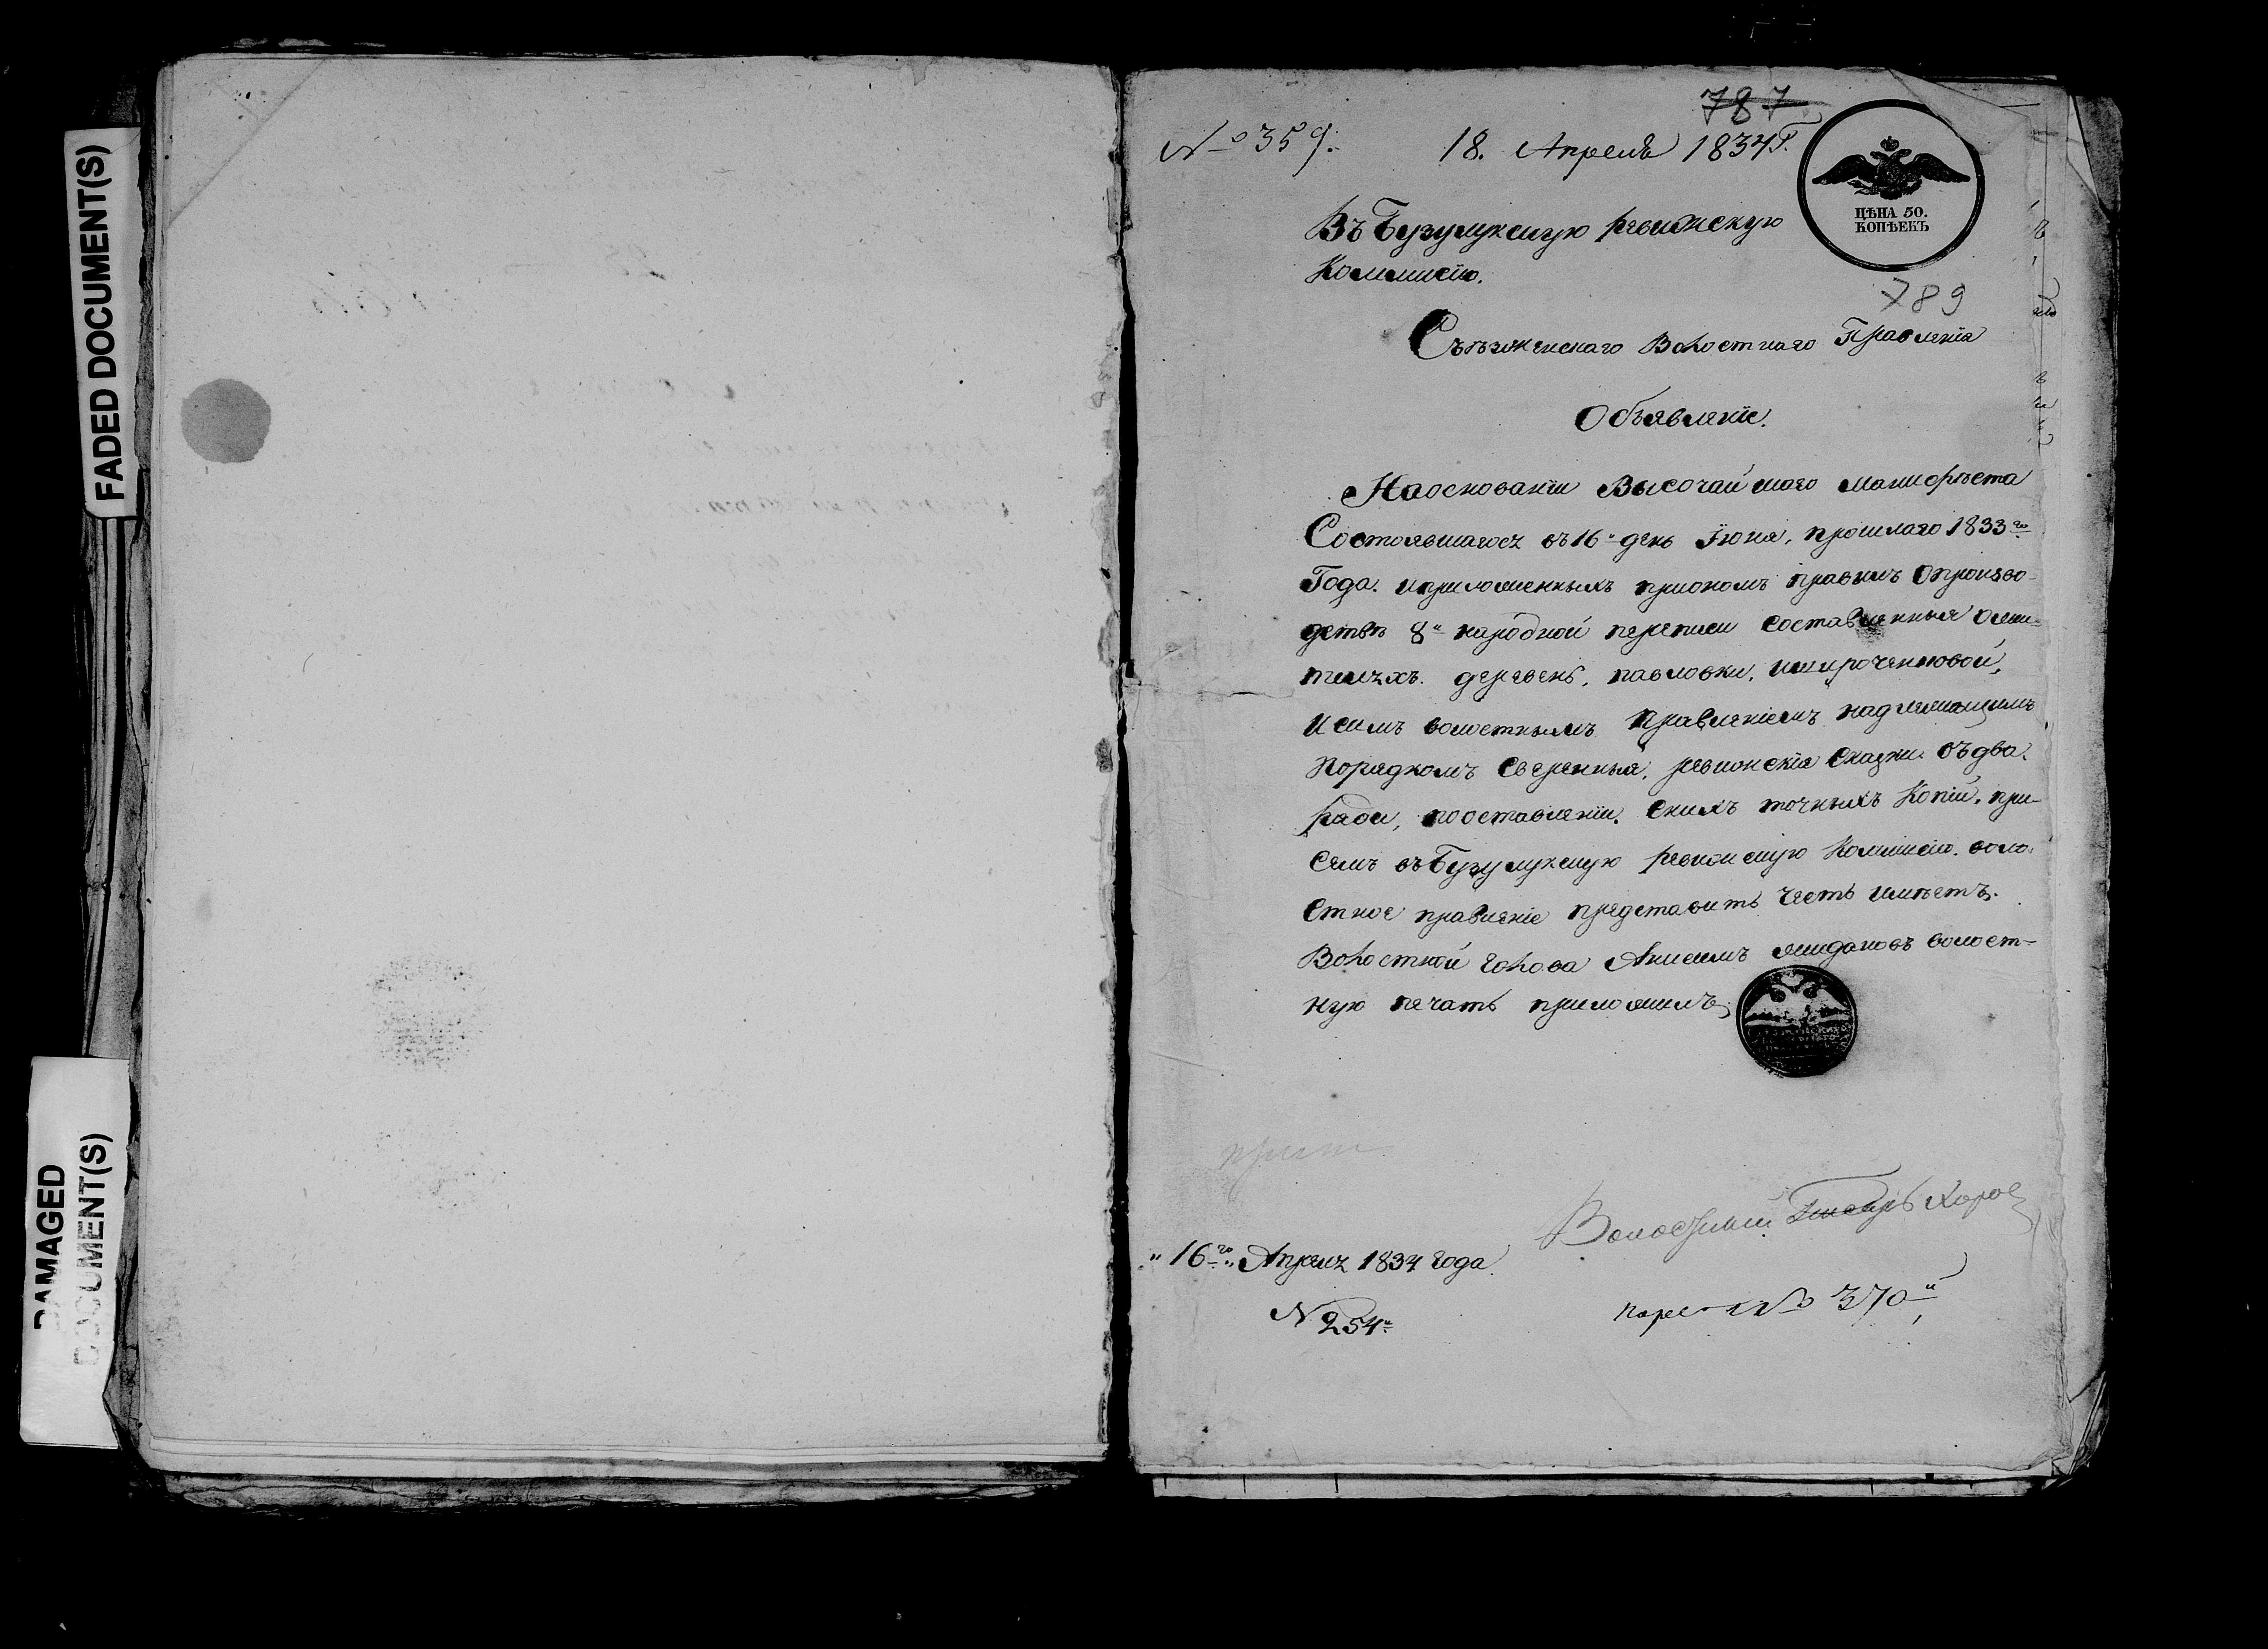 FADED DOCUMENT(S)
DAMAGED
DOCUMENT(S)
787
№ 359.
18. Апреля 1834 г.
ЦѢНА 50.
КОПѢЕКЪ
Въ Бузулукскую ревижскую
Коммисїю.
789
Съѣзженскаго Волостнаго Правленїя
Объявленїе.
Наоснованїи Высочайшаго манифѣста
Состоявшагося въ 16 й день Їюня, прошлаго 1833 го
Года. иприложенныхъ приономъ правилъ Опроизво-
детвѣ 8 й народной переписи Составленныя Ожи-
теляхъ деревень, павловки,
и симъ волостнымъ Правленїемъ надлежащимъ
Порядкомъ Сверенныя, ревижскїя Сказки. въ два
ради, пооставленїи. Снихъ точныхъ Копїй, при
Семъ въ Бузулукскую ревижскую Коммисїю. воло-
Стное правленїе представить Честь имѣетъ.
Волостной Голова Анисимъ волост-
ную печать приложилъ
Волостный Писарь
" 16 го " Апреля 1834 Года.
№ 254 й
№ 370 й